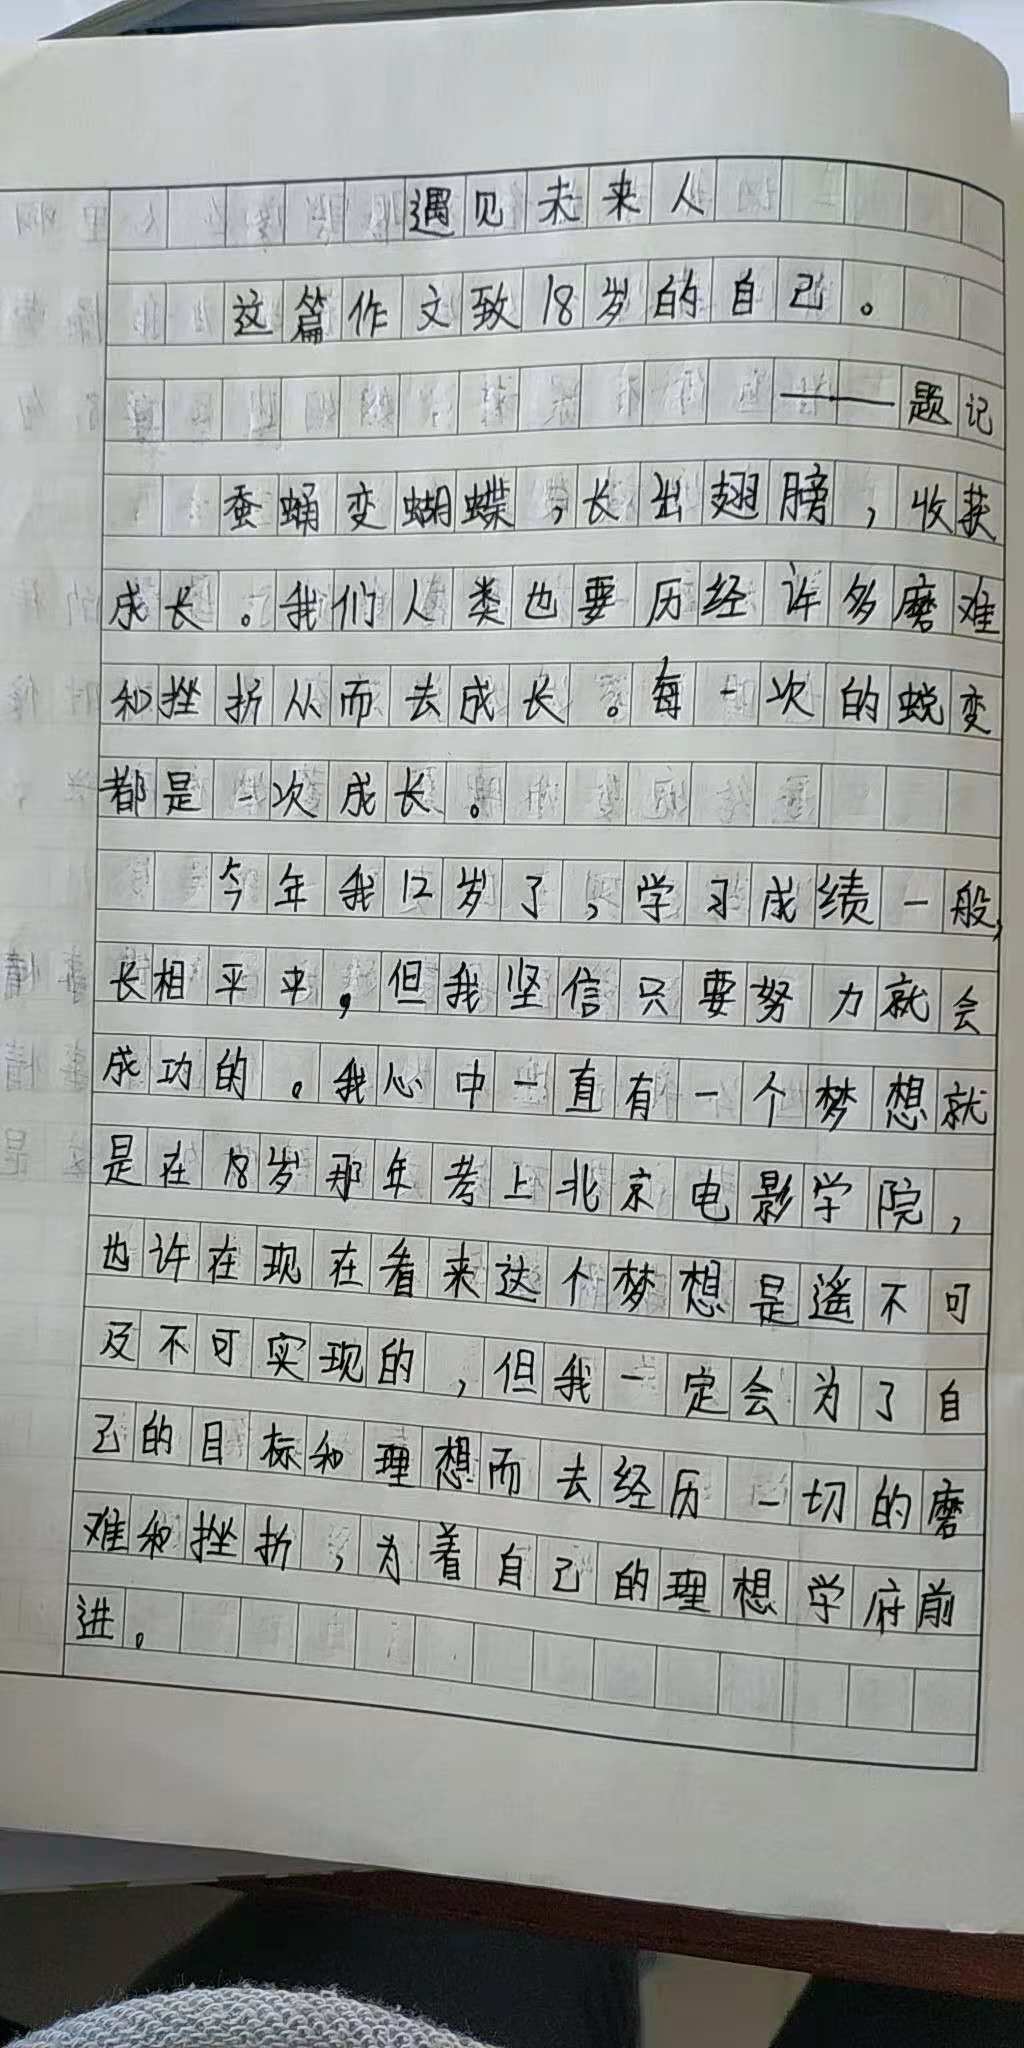 遇见未来人
这篇作文致18岁的自己。
——题记
蚕蛹变蝴蝶,长出翅膀,收获
成长。我们人类也要历经许多磨难
和挫折从而去成长。每一次的蜕变
都是一次成长。
今年我12岁了,学习成绩一般,
长相平平,但我坚信只要努力就会
成功的。我心中一直有一个梦想就
是在18岁那年考上北京电影学院,
也许在现在看来这个梦想是遥不可
及不可实现的,但我一定会为了自
己的目标和理想而去经历一切的磨
难和挫折,为着自己的理想学府前
进。